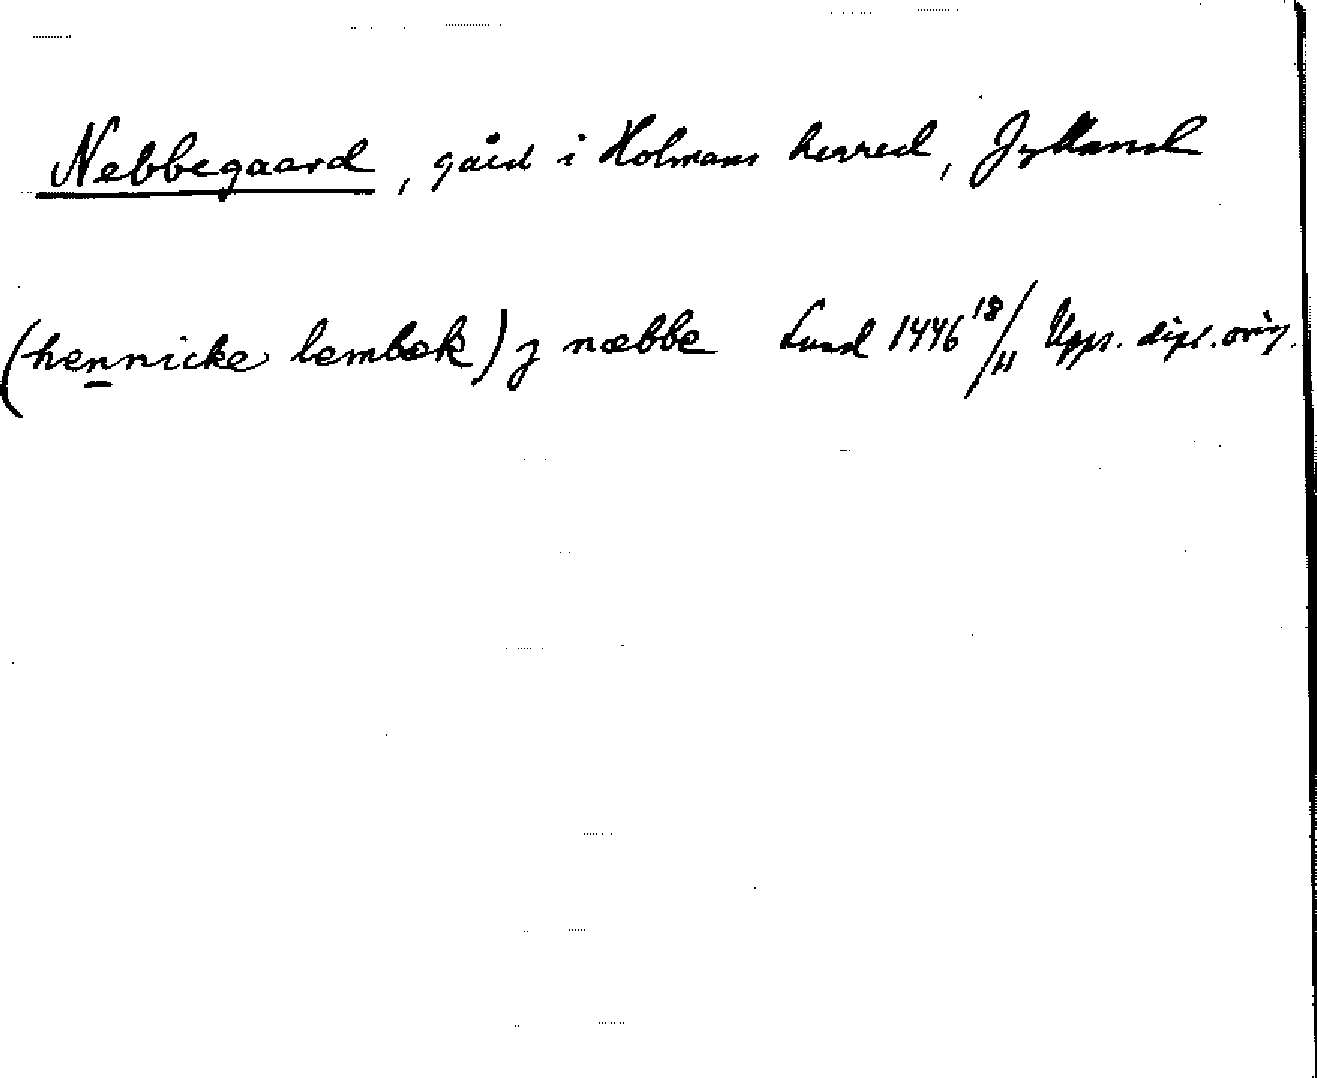 Nebbegaard, gård i Holmans herred, Jylland
(hennicke lembek) j næbbe Lund 1446 18/11 Upps. dipl. orig.